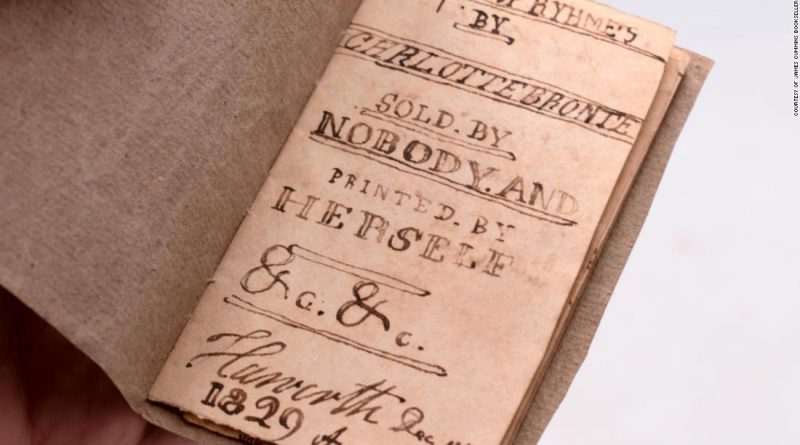 RYHME'S
BY.
CERLOTTE BRONTE
SOLD. BY
NOBODY. AND
PRINTED. BY
HERSELF
&c. &c.
Haworth Dec
1829
COURTESY OF JAMES CUMMINS BOOKSELLER